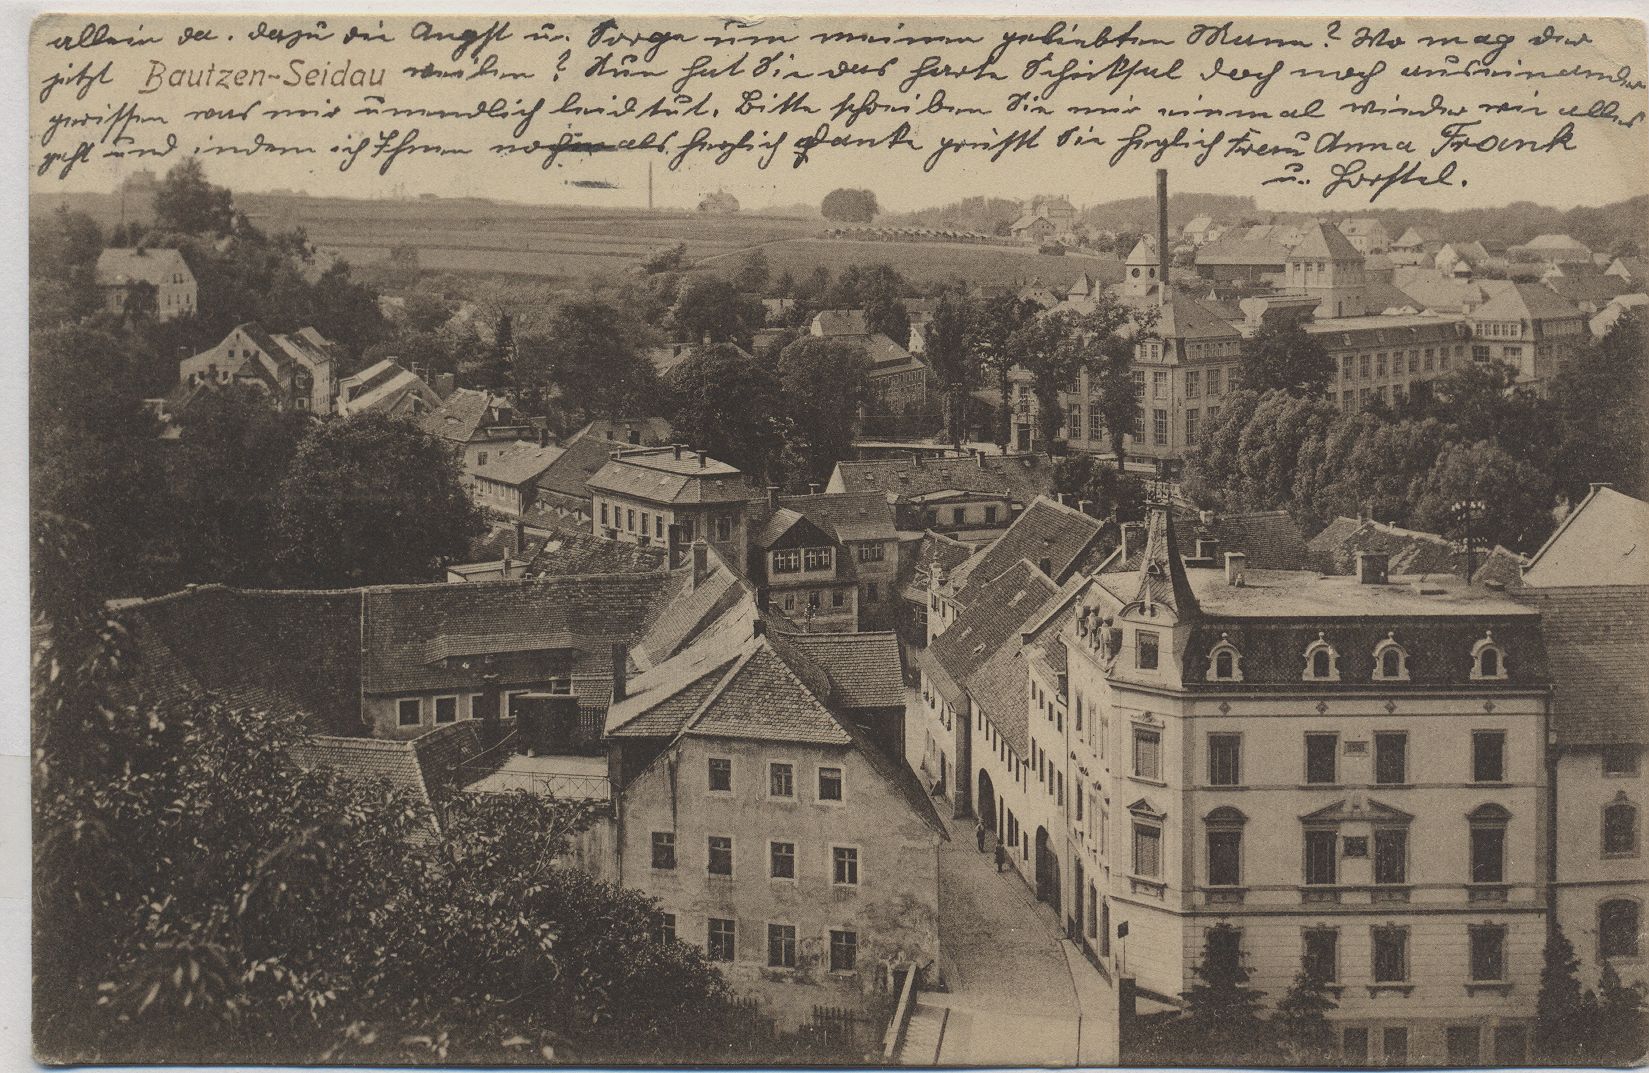 allein da. dazu die Angst u. Sorge um meinen geliebten Mann? Wo mag der
jetzt Bautzen-Seidau weilen? Nun hat Sie das harte Schicksal doch noch auseinander
gerissen was mir unendlich leid tut. Bitte schreiben Sie mir einmal wieder wie alles
geht und indem ich Ihnen nochmals herzlich danke grüsst Sie herzlich Frau Anna Frank
u. Horstel.